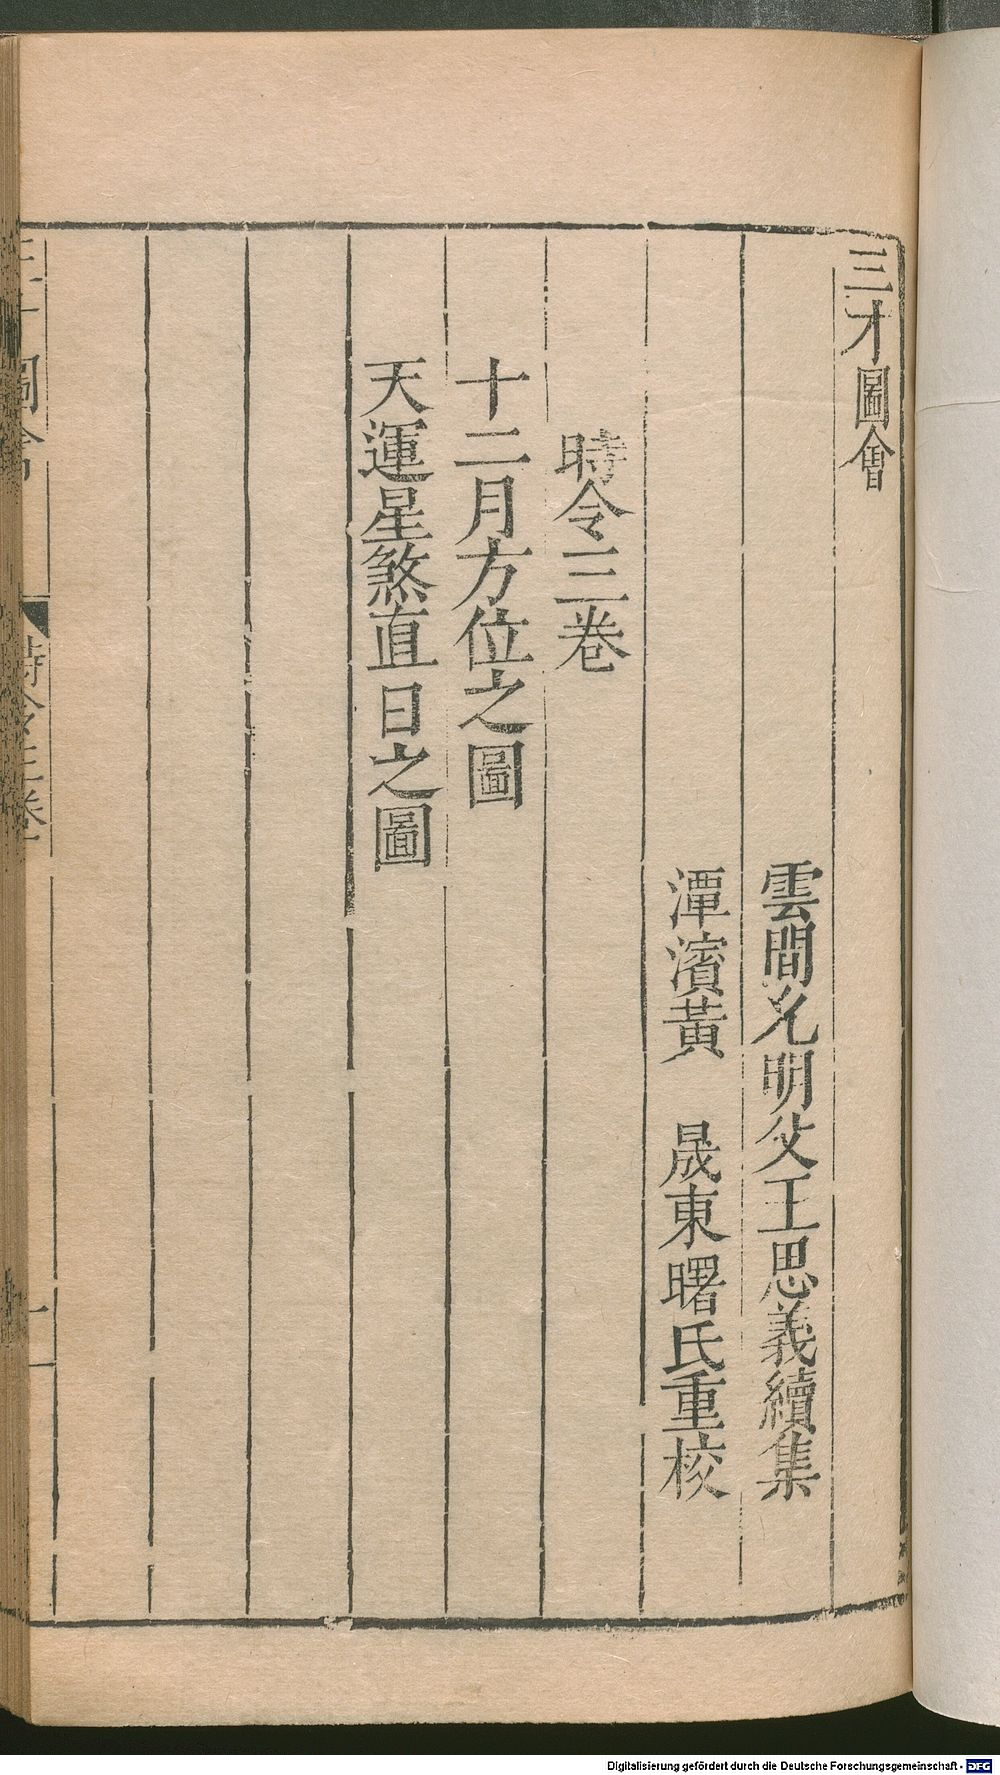 三才圖會
雲間允明父王思義續集
潭濱黃 晟東曙氏重校
時令三卷
十二月方位之圖
天運星煞直日之圖
三才圖會 時令三卷 一
Digitalisierung gefördert durch die Deutsche Forschungsgemeinschaft - DFG